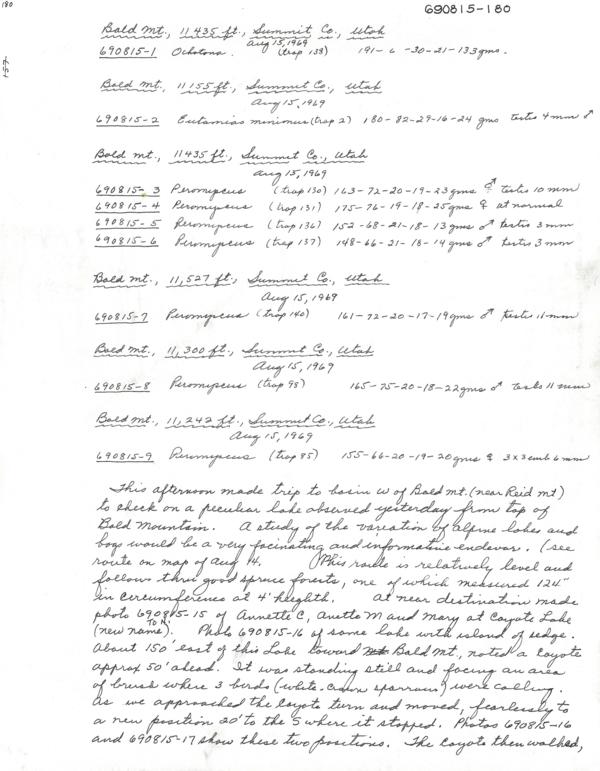 180
690815-180
157
Bald Mt., 11435 ft., Summit Co., Utah
Aug 15, 1969
690815-1 Ochotona. (trap 138) 191-6-30-21-133gms.
Bald Mt., 11155 ft., Summit Co., Utah
Aug 15, 1969
690815-2 Eutamias minimus (trap 2) 180-82-29-16-24 gms testis 4 mm ♂
Bald Mt., 11435 ft., Summit Co., Utah
Aug 15, 1969
690815-3 Peromyscus (trap 130) 163-72-20-19-23gms ♂ testis 10 mm
690815-4 Peromyscus (trap 131) 175-76-19-18-25gms ♀ ut normal
690815-5 Peromyscus (trap 136) 152-68-21-18-13 gms ♂ testis 3 mm
690815-6 Peromyscus (trap 137) 148-66-21-18-14 gms ♂ testis 3 mm
Bald Mt., 11,527 ft., Summit Co., Utah
Aug 15, 1969
690815-7 Peromyscus (trap 140) 161-72-20-17-19gms ♂ testis 11 mm
Bald Mt., 11,300 ft., Summit Co., Utah
Aug 15, 1969
690815-8 Peromyscus (trap 98) 165-75-20-18-22gms ♂ testis 11 mm
Bald Mt., 11,242 ft., Summit Co., Utah
Aug 15, 1969
690815-9 Peromyscus (trap 85) 155-66-20-19-20gms ♀ 3x3 emb 6 mm
This afternoon made trip to basin W of Bald Mt. (near Reid Mt)
to check on a peculiar lake observed yesterday from top of
Bald Mountain. A study of the variation of alpine lakes and
bogs would be a very facinating and informative endevor. (see
route on map of Aug 14. This route is relatively level and
follows thru good spruce forests, one of which measured 124"
in circumference at 4' heighth. At near destination made
photo 690815-15 of Annette C, Anetta M and Mary at Coyote Lake
(new name). Photo 690815-16 of same lake with island of sedge.
About 150' east of this Lake toward Bald Mt., noted a Coyote
approx 50' ahead. It was standing still and facing an area
of brush where 3 birds (white-crown sparrows) were calling.
As we approached the Coyote turn and moved, fearlessly to
a new position 20' to the S where it stopped. Photos 690815-16
and 690815-17 show these two positions. The Coyote then walked,